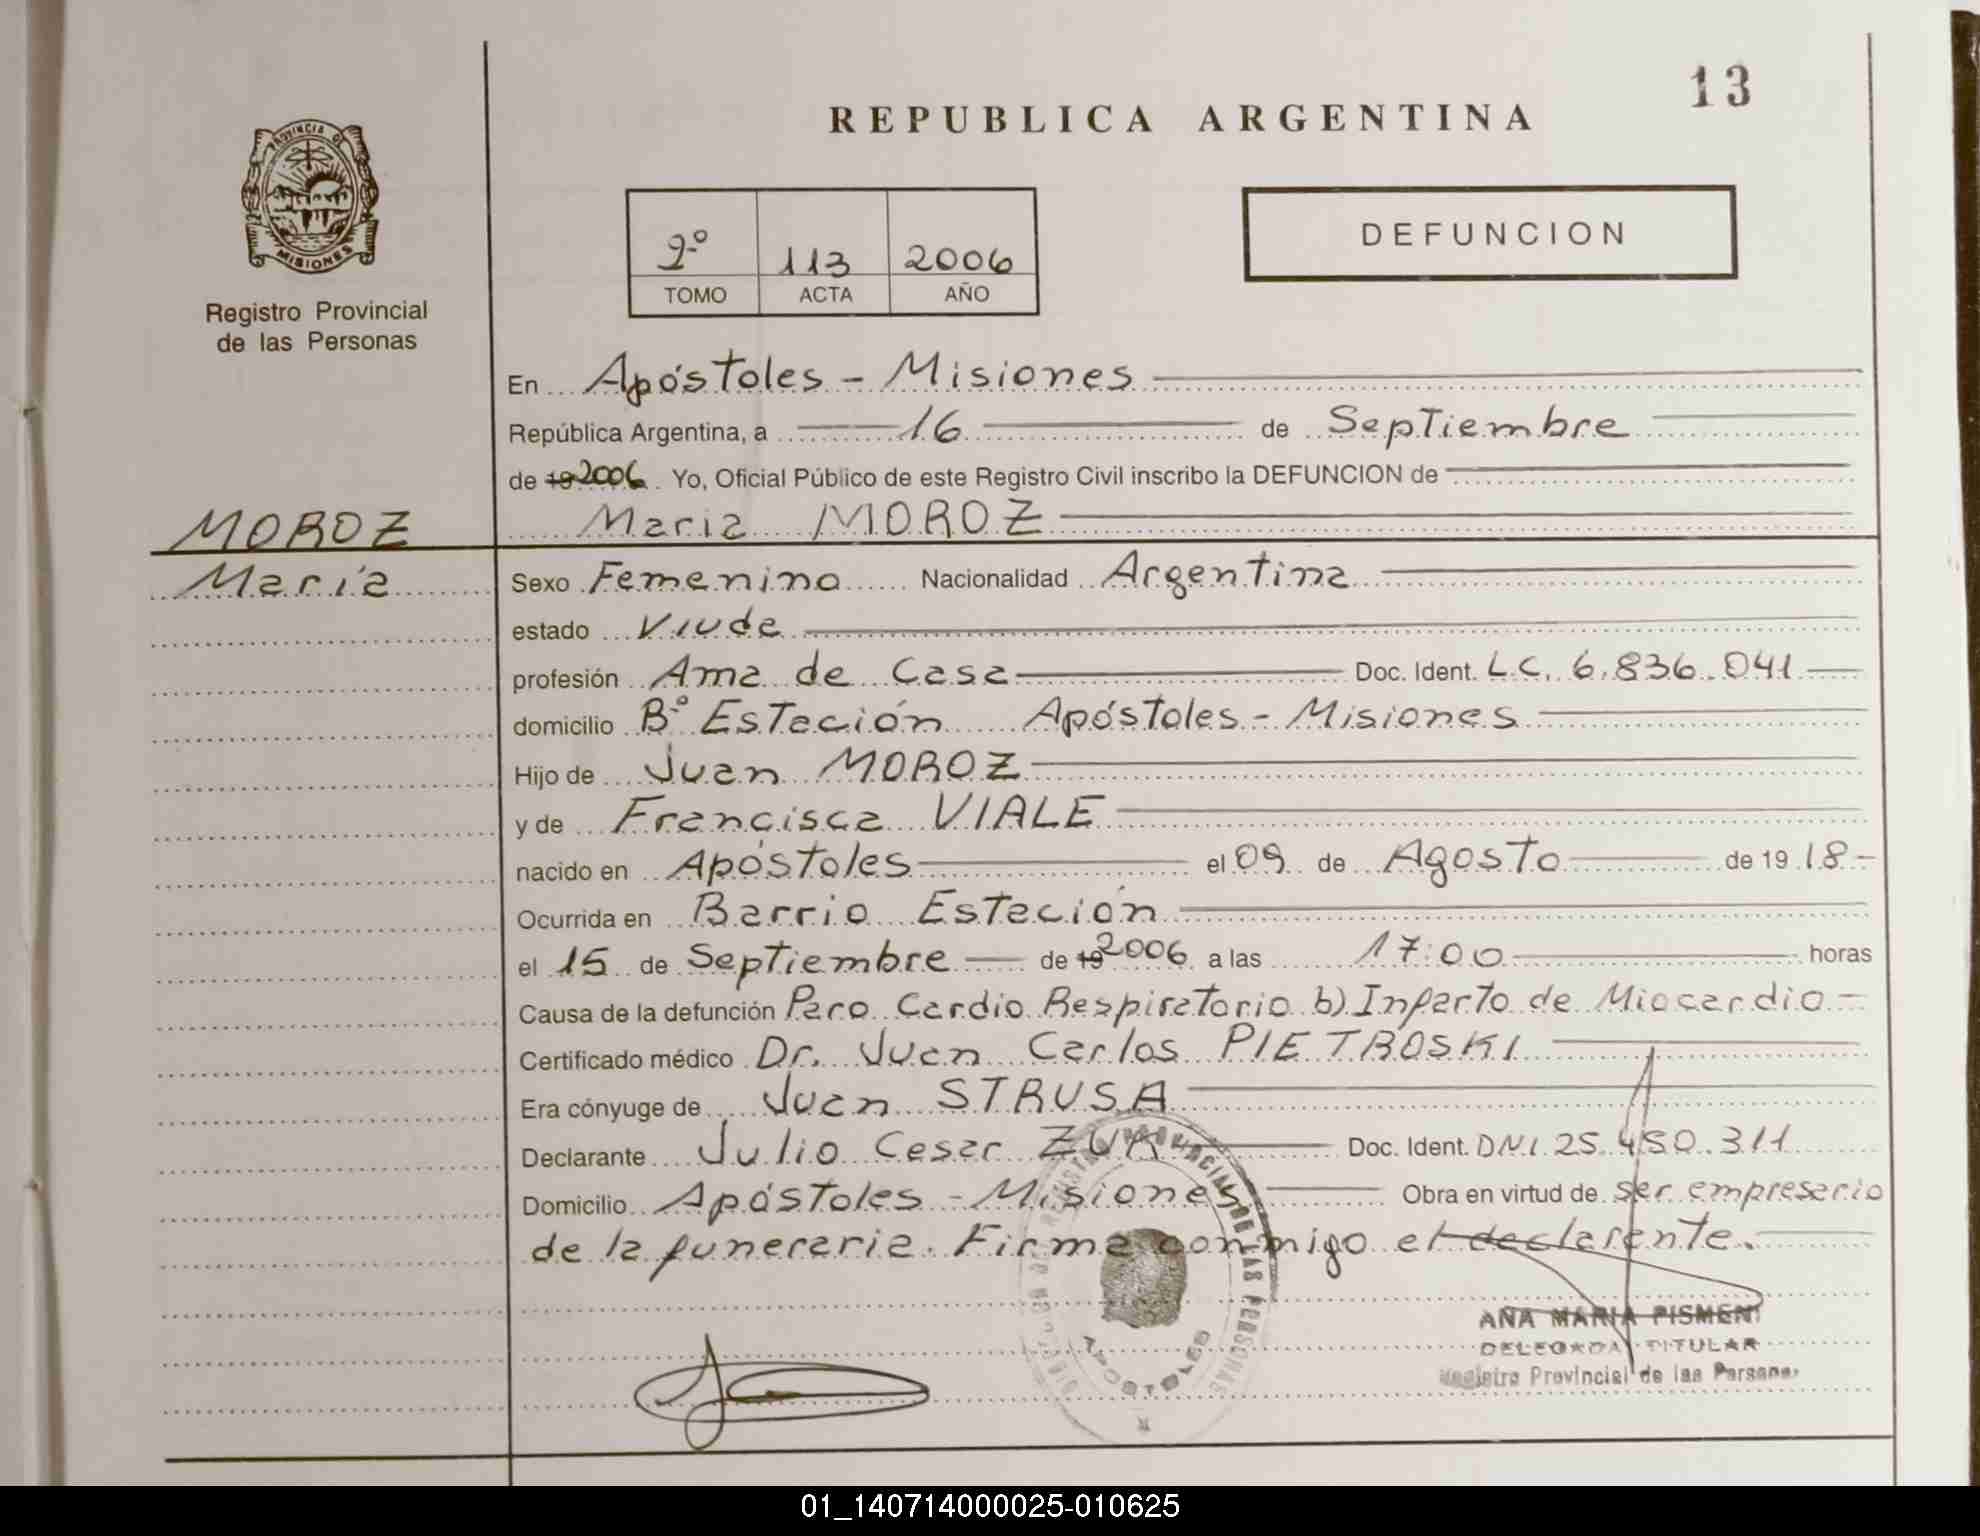 13
REPUBLICA ARGENTINA
PROVINCIA DE
MISIONES
Registro Provincial
de las Personas
2º 113 2006
TOMO ACTA AÑO
DEFUNCION
En Apóstoles - Misiones
República Argentina, a 16 de Septiembre
de 19 2006. Yo, Oficial Público de este Registro Civil inscribo la DEFUNCION de
MOROZ
Maria MOROZ
María
Sexo Femenino Nacionalidad Argentina
estado Viuda
profesión Ama de Casa Doc. Ident. L.C. 6.836.041
domicilio Bº Estación Apóstoles - Misiones
Hijo de Juan MOROZ
y de Francisca VIALE
nacido en Apóstoles el 09 de Agosto de 19 18 -
Ocurrida en Barrio Estación
el 15 de Septiembre de 19 2006 a las 17:00 horas
Causa de la defunción Paro Cardio Respiratorio b) Infarto de Miocardio -
Certificado médico Dr. Juan Carlos PIETROSKI
Era cónyuge de Juan STRUSA
Declarante Julio Cesar ZUK Doc. Ident. DNI. 25.450.311
Domicilio Apóstoles - Misiones Obra en virtud de ser empresario
de la funeraria. Firma conmigo el declarante.
REGISTRO PROVINCIAL DE LAS PERSONAS
APOSTOLES
ANA MARIA PISMENI
DELEGADA TITULAR
Registro Provincial de las Personas
01_140714000025-010625